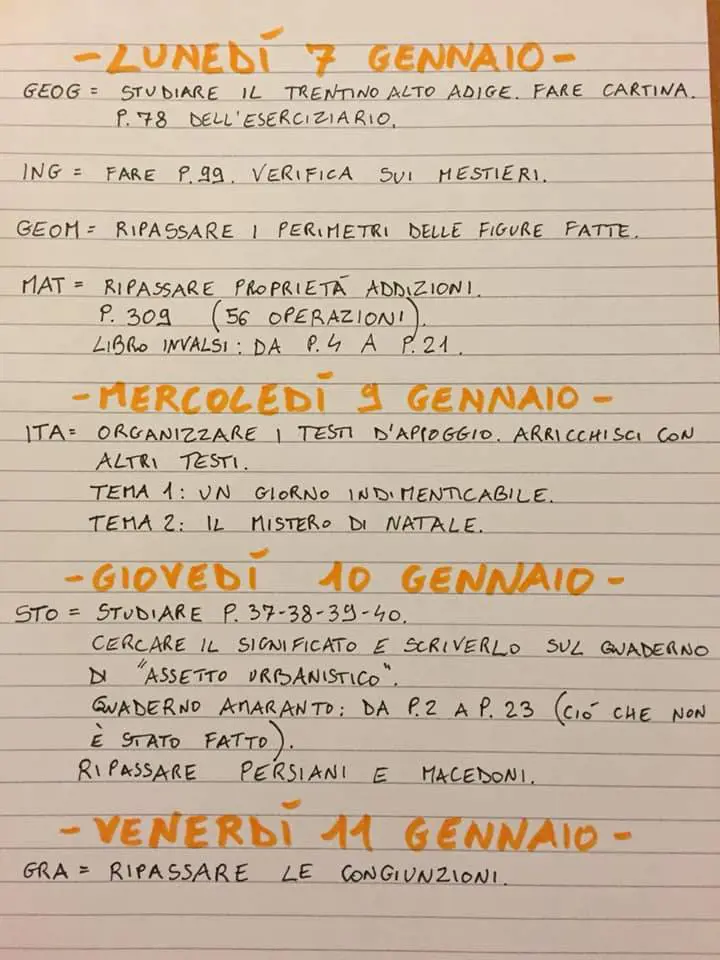 - LUNEDÍ 7 GENNAIO -
GEOG = STUDIARE IL TRENTINO ALTO ADIGE. FARE CARTINA.
P. 78 DELL'ESERCIZIARIO.
ING = FARE P.99. VERIFICA SUI MESTIERI.
GEOM = RIPASSARE I PERIMETRI DELLE FIGURE FATTE.
MAT = RIPASSARE PROPRIETÁ ADDIZIONI.
P. 309 (56 OPERAZIONI).
LIBRO INVALSI: DA P.4 A P.21.
- MERCOLEDÍ 9 GENNAIO -
ITA = ORGANIZZARE I TESTI D'APPOGGIO. ARRICCHISCI CON
ALTRI TESTI.
TEMA 1: UN GIORNO INDIMENTICABILE.
TEMA 2: IL MISTERO DI NATALE.
- GIOVEDÍ 10 GENNAIO -
STO = STUDIARE P. 37-38-39-40.
CERCARE IL SIGNIFICATO E SCRIVERLO SUL QUADERNO
DI "ASSETTO URBANISTICO".
QUADERNO AMARANTO: DA P.2 A P. 23 (CIÓ CHE NON
È STATO FATTO).
RIPASSARE PERSIANI E MACEDONI.
- VENERDÍ 11 GENNAIO -
GRA = RIPASSARE LE CONGIUNZIONI.